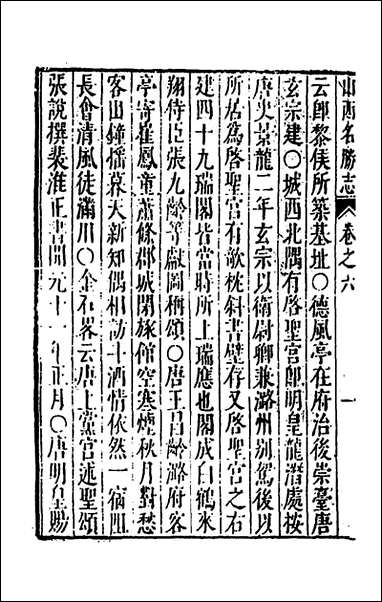 山西名勝志 卷之六 一
云卽黎侯所築基址〇德風亭在府治後崇臺唐
玄宗建〇城西北隅有啓聖宮卽明皇龍潛處按
唐史景龍二年玄宗以衛尉卿兼潞州別駕後以
所居爲啓聖宮有欹枕斜書壁存又啓聖宮之右
建四十九瑞閣皆當時所上瑞應也閣成白鶴來
翔侍臣張九齡等獻圖稱頌〇唐王昌齡潞府客
亭寄崔鳳童蕭條郡城閉旅館空寒煙秋月對愁
客山鐘搖暮天新知偶相訪斗酒情依然一宿阻
長會清風徒滿川〇金石畧云唐上黨宮述聖頌
張說撰裴漼正書開元十一年正月〇唐明皇賜